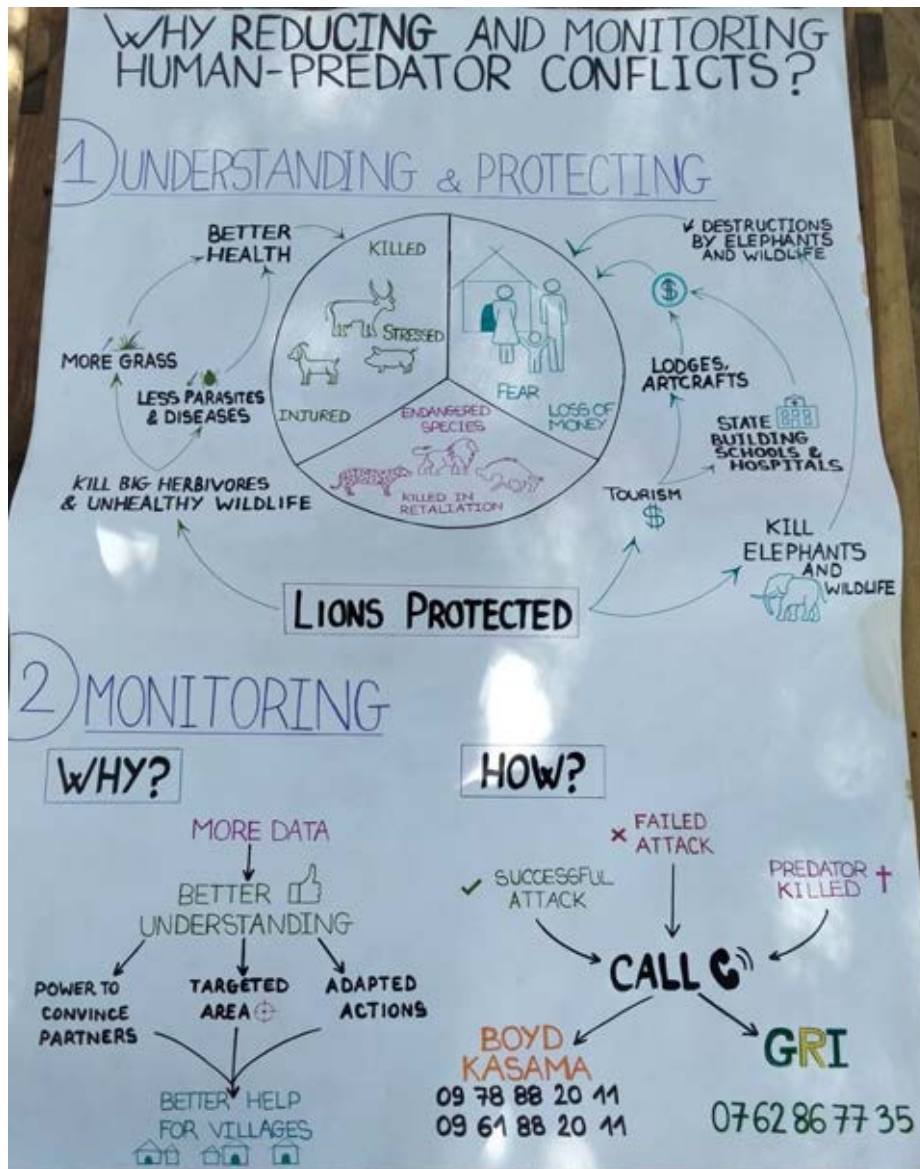 WHY REDUCING AND MONITORING
HUMAN-PREDATOR CONFLICTS?
1 UNDERSTANDING & PROTECTING
BETTER
HEALTH
MORE GRASS
LESS PARASITES
& DISEASES
KILL BIG HERBIVORES
& UNHEALTHY WILDLIFE
KILLED
STRESSED
INJURED
FEAR
LOSS OF
MONEY
ENDANGERED
SPECIES
KILLED IN
RETALIATION
↙ DESTRUCTIONS
BY ELEPHANTS
AND WILDLIFE
$
LODGES,
ARTCRAFTS
STATE
BUILDING
SCHOOLS &
HOSPITALS
TOURISM
$
KILL
ELEPHANTS
AND
WILDLIFE
LIONS PROTECTED
2 MONITORING
WHY?
MORE DATA
BETTER
UNDERSTANDING
POWER TO
CONVINCE
PARTNERS
TARGETED
AREA
ADAPTED
ACTIONS
BETTER HELP
FOR VILLAGES
HOW?
✓ SUCCESSFUL
ATTACK
× FAILED
ATTACK
PREDATOR
KILLED †
CALL
BOYD
KASAMA
09 78 88 20 11
09 61 88 20 11
GRI
0762867735